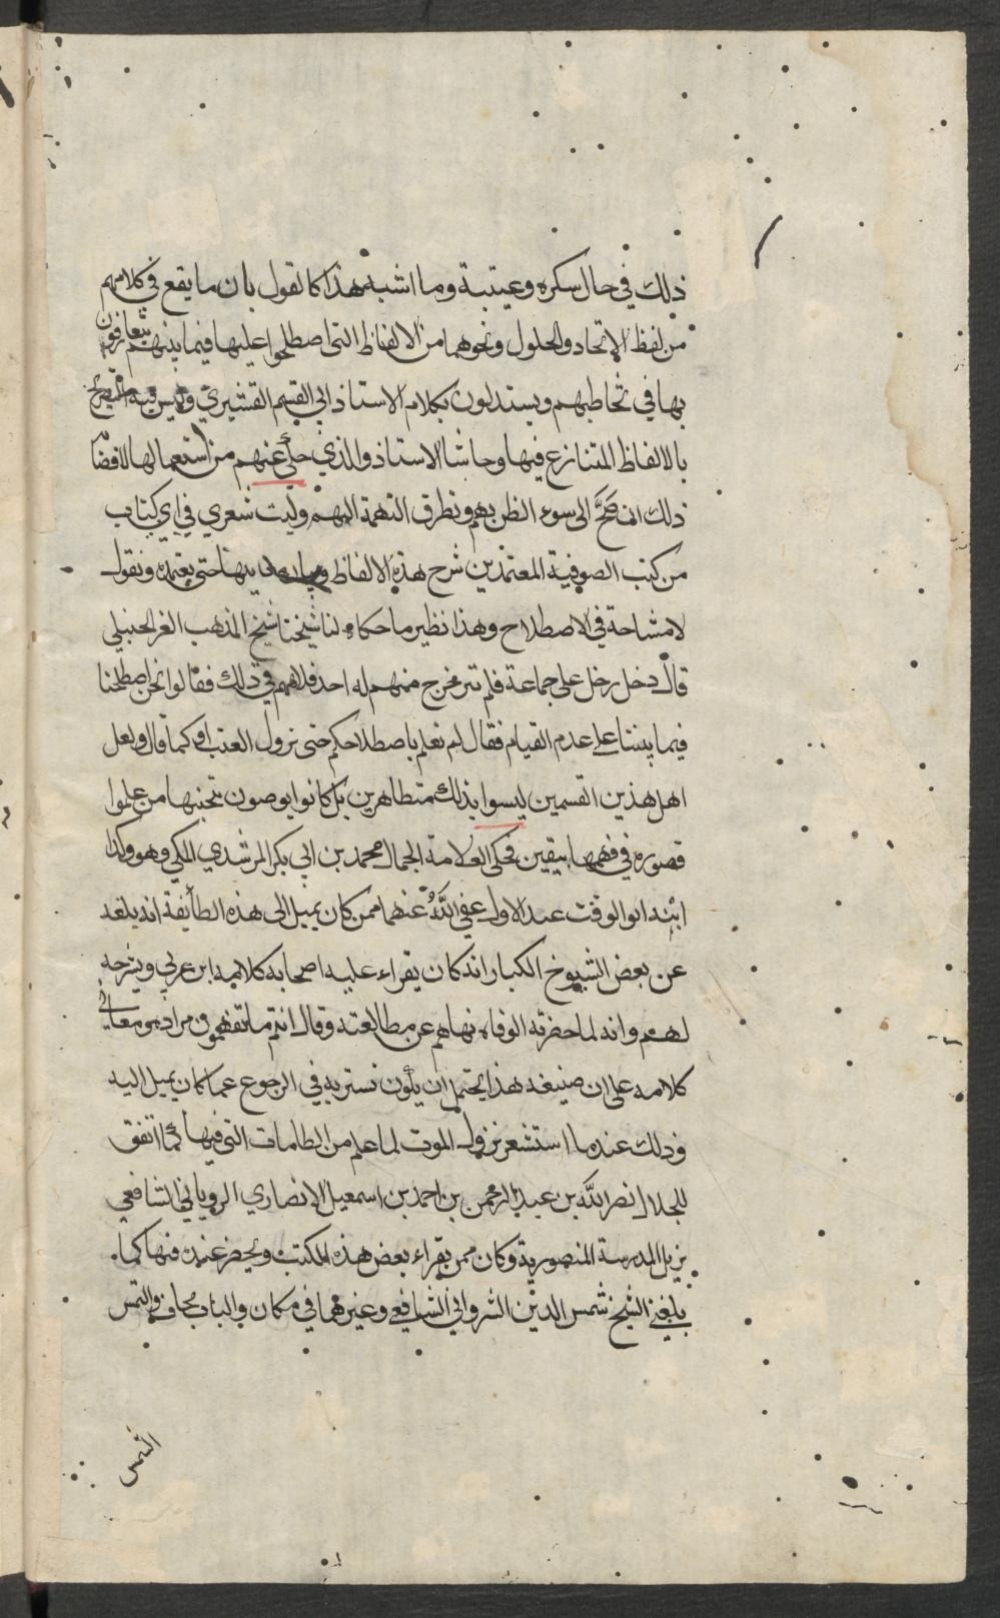 ذلك في حال سكره وغيبته وما اشبه هذا كما تقول بان ما يقع في كلامهم
من لفظ الاتحاد والحلول ونحوهما من الالفاظ التي اصطلحوا عليها فيما بينهم يتعارفون
بها في تخاطبهم ويستدلون بكلام الاستاذ ابي القسم القشيري وليس فيه التصريح
بالالفاظ المتنازع فيها وحاشا الاستاذ والذي حلي عنهم من استعمالها لافضا
ذلك ان صح الى سوء الظن بهم وتطرق التهمة اليهم وليت شعري في اي كتاب
من كتب الصوفية المعتمدين شرح هذه الالفاظ وبيان معانيها حتى يعتمده ونقول
لا مشاحة في الاصطلاح وهذا نظير ما حكاه لنا شيخنا شيخ المذهب العز الحنبلي
قال دخل رجل على جماعة فلم يتزحزح منهم له احد فلامهم في ذلك فقالوا نحن اصطلحنا
فيما بيننا على عدم القيام فقال لم نعلم باصطلاحكم حتى نزول العتب او كما قال ولعل
اهل هذين القسمين ليسوا بذلك متظاهرين بل كانوا يوصون بتجنبها من علموا
قصوره في فهمها بيقين فحكى العلامة الجمال محمد بن ابي بكر المرشدي المكي وهو وكذا
ابنه ابو الوقت عبد الاول عفى الله عنهما ممن كان يميل الى هذه الطايفة انه بلغه
عن بعض الشيوخ الكبار انه كان يقراء عليه اصحابه كلام ابن عربي ويشرحه
لهم وانه لما حضرته الوفاه نهاهم عن مطالعته وقال انتم ما تفهمون مرادهم ومعاني
كلامه على ان صنيعه هذا يحتمل ان يكون تستر به في الرجوع عما كان يميل اليه
وذلك عند ما استشعر نزول الموت لما علم من الطامات التي فيها كما اتفق
للجلال نصر الله بن عبد الرحمن بن احمد بن اسمعيل الانصاري الروياني الشافعي
نزيل المدرسة المنصورية وكان ممن يقراء بعض هذه الكتب ويحضر عنده فيها كما
بلغني الشيخ شمس الدين الشرواني الشافعي وغيرهما في مكان والباب مجاف والتمس
الشمس